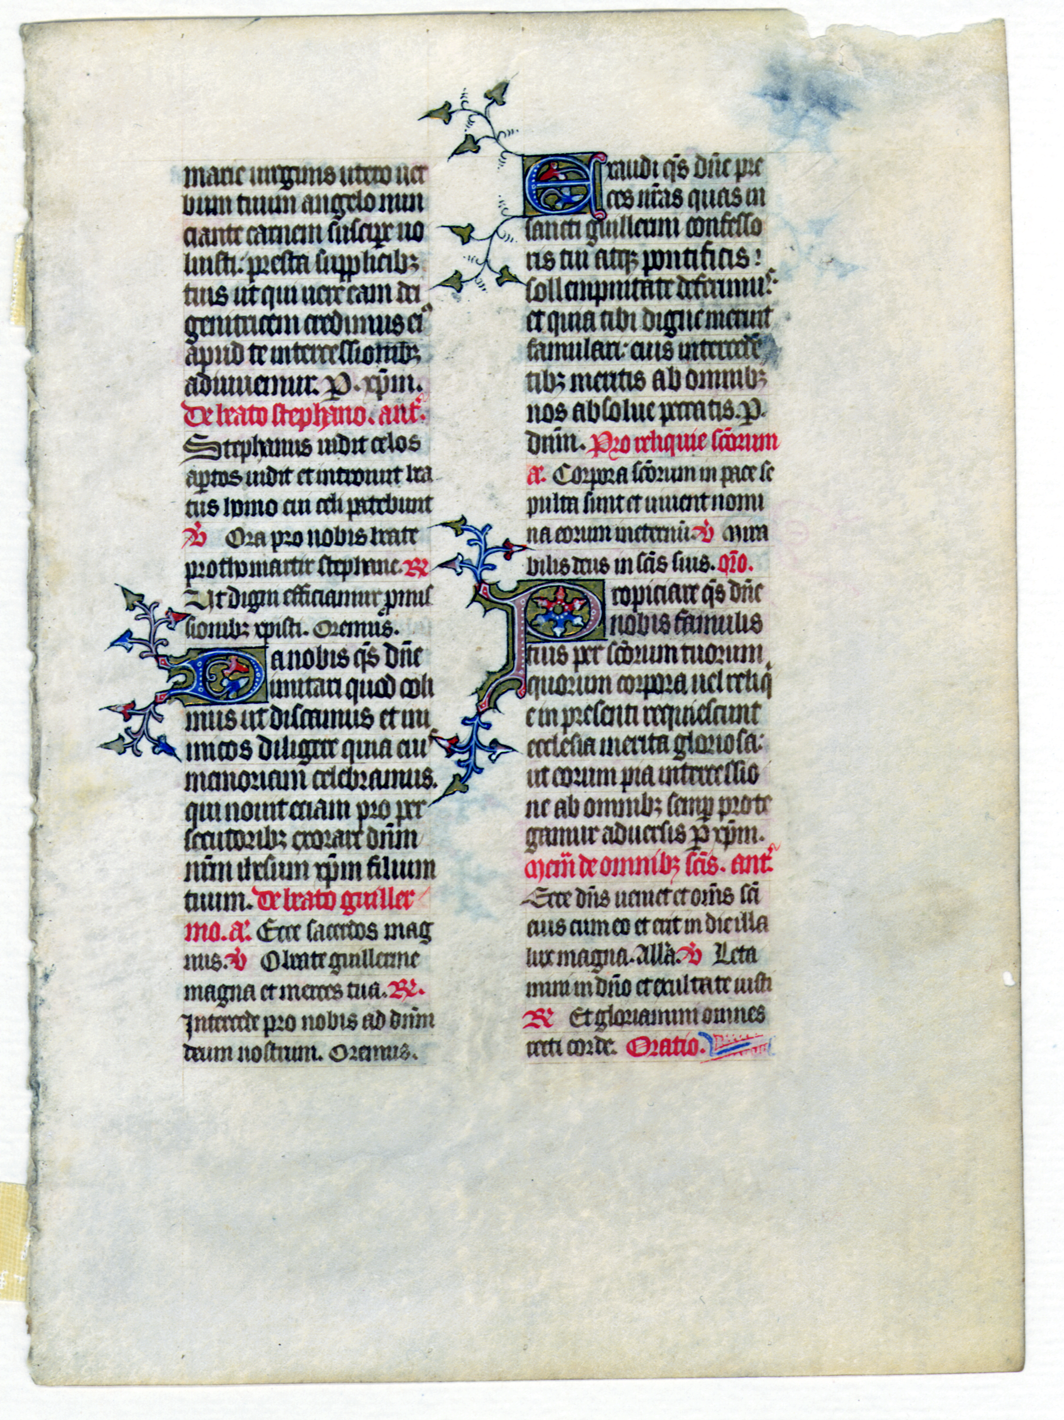 marie uirginis utero uer
bum tuum angelo nun
ciante carnem suscipe uo
luisti: presta supplicib;
tuis ut qui uere eam dei
genitricem credimus ei9
apud te intercessionib;
adiuuemur. P. xp̄m.
De beato stephano. ant̄.
Stephanus uidit celos
ap̄tos uidit et introiuit bea
tus homo cui celi patebunt
V Ora pro nobis beate
prothomartir stephane. R
Ut digni efficiamur p̄mis
sionib; xpisti. Oremus.
Da nobis q̄s dn̄e
imitari quod coli
mus ut discamus et ini
micos diligere quia eius
memoriam celebramus.
qui nouit eciam pro per
secutorib; exorare dn̄m
nr̄m ihesum xp̄m filium
tuum. De beato guiller
mo. a. Ecce sacerdos mag
nus. V O beate guillerme
magna et merces tua. R.
Intercede pro nobis ad dn̄m
deum nostrum. Oremus.
Exaudi q̄s dn̄e pre
ces nr̄as quas in
sancti guillermi confesso
ris tui atq; pontificis:
sollempnitate deferimus.
et quia tibi digne meruit
famulari: eius intercede
tib; meritis ab omnib;
nos absolue peccatis. P.
dn̄m. Pro reliquie sc̄orum
a. Corpora sc̄orum in pace se
pulta sunt et uiuent nomi
na eorum in eternū. V Mira
bilis deus in sc̄is suis. or̄o.
Propiciare q̄s dn̄e
nobis famulis
tuis per sc̄orum tuorum
quorum corpora uel reliq
e in presenti requiescunt
ecclesia merita gloriosa:
ut eorum pia intercessio
ne ab omnib; semp̄ prote
gamur aduersis P xp̄m.
Mem̄ de omnib; sc̄is. ant̄.
Ecce dn̄s ueniet et om̄s sc̄i
eius cum eo et erit in die illa
lux magna. Allā. V Leta
mini in dn̄o et exultate iusti
R Et gloriamini omnes
recti corde. Oratio.